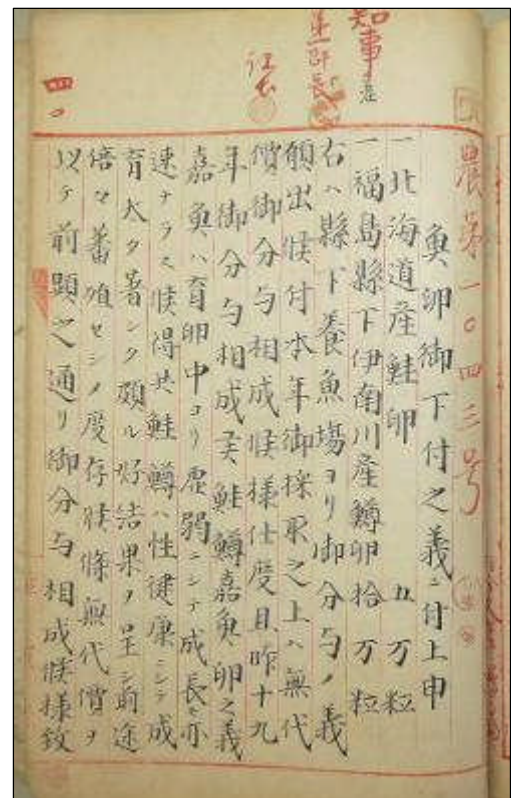 知事
農第一〇四三号
魚卵御下付之義ニ付上申
一北海道産鮭卵 五万粒
一福島縣下伊南川産鱒卵拾万粒
右ハ縣下養魚場ヨリ御分与ノ義
願出候付本年御採取之上ハ無代
償御分与相成候様仕度且昨十九
年御分与相成候鮭鱒嘉魚卵之義
嘉魚ハ育卵中ヨリ虚弱ニシテ成長亦
速ナラス候得共鮭鱒ハ性健康ニシテ成
育大タ著シク頗ル好結果ヲ呈シ前途
倍々蕃殖セシメ度存候條無代償ヲ
以テ前顕之通リ御分与相成候様致
四